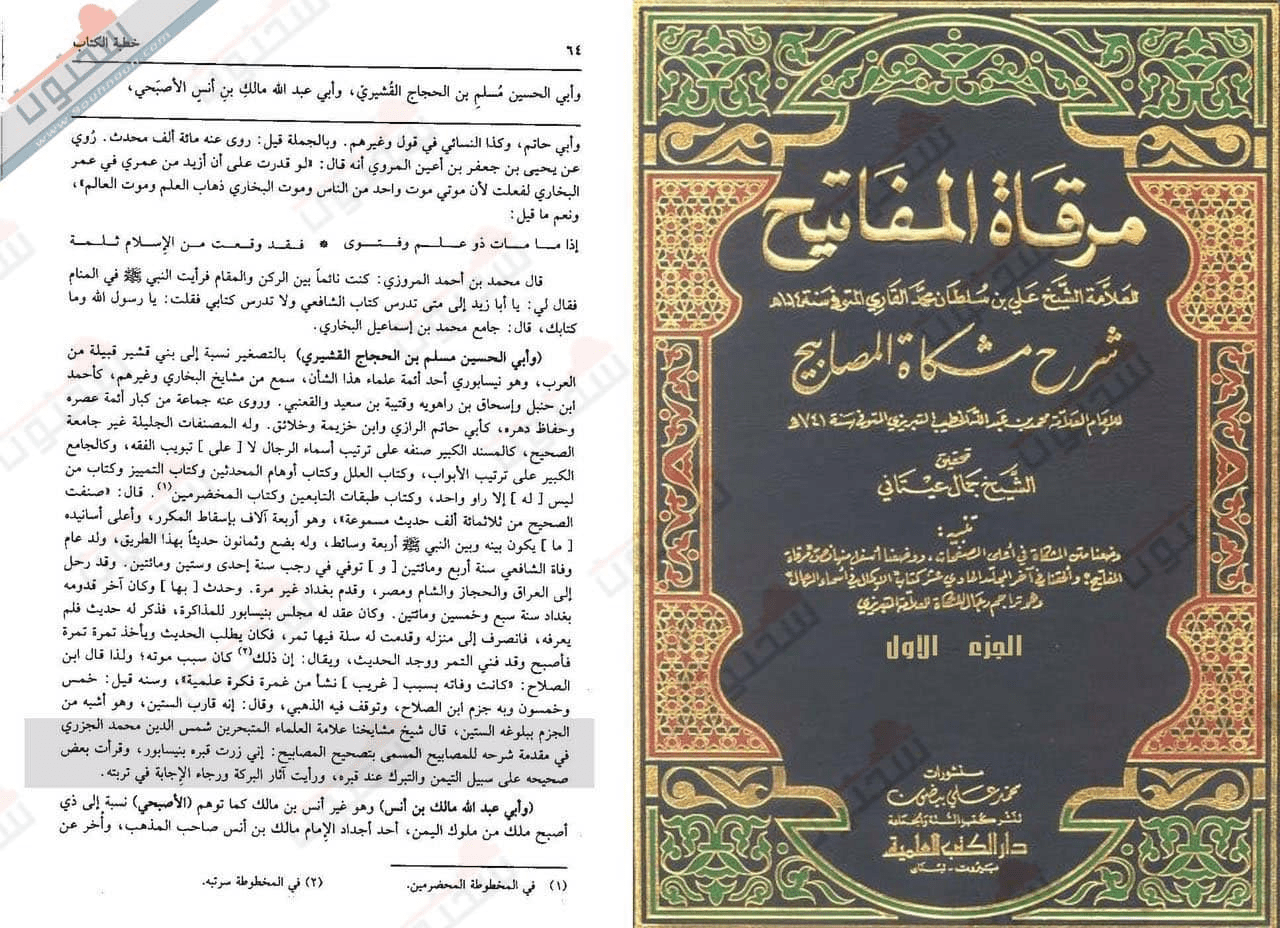 سحنون
www.souhnoon.com
٦٤
خطبة الكتاب
وأبي الحسين مُسلمِ بن الحجاج القُشيريّ، وأبي عبد الله مالكِ بنِ أنس الأصبَحي،
وأبي حاتم، وكذا النسائي في قول وغيرهم. وبالجملة قيل: روى عنه مائة ألف محدث. رُوي
عن يحيى بن جعفر بن أعين المروي أنه قال: «لو قدرت على أن أزيد من عمري في عمر
البخاري لفعلت لأن موتي موت واحد من الناس وموت البخاري ذهاب العلم وموت العالم»،
ونعم ما قيل:
إذا مـا مـات ذو عـلـم وفـتـوى * فـقـد وقـعـت مـن الإسـلام ثـلـمـة
قال محمد بن أحمد المروزي: كنت نائماً بين الركن والمقام فرأيت النبي ﷺ في المنام
فقال لي: يا أبا زيد إلى متى تدرس كتاب الشافعي ولا تدرس كتابي فقلت: يا رسول الله وما
كتابك، قال: جامع محمد بن إسماعيل البخاري.
(وأبي الحسين مسلم بن الحجاج القشيري) بالتصغير نسبة إلى بني قشير قبيلة من
العرب، وهو نيسابوري أحد أئمة علماء هذا الشأن، سمع من مشايخ البخاري وغيرهم، كأحمد
ابن حنبل وإسحاق بن راهويه وقتيبة بن سعيد والقعنبي. وروى عنه جماعة من كبار أئمة عصره
وحفاظ دهره، كأبي حاتم الرازي وابن خزيمة وخلائق. وله المصنفات الجليلة غير جامعة
الصحيح، كالمسند الكبير صنفه على ترتيب أسماء الرجال لا [ على ] تبويب الفقه، وكالجامع
الكبير على ترتيب الأبواب، وكتاب العلل وكتاب أوهام المحدثين وكتاب التمييز وكتاب من
ليس [ له ] إلا راو واحد، وكتاب طبقات التابعين وكتاب المخضرمين(١). قال: «صنفت
الصحيح من ثلاثمائة ألف حديث مسموعة»، وهو أربعة آلاف بإسقاط المكرر، وأعلى أسانيده
[ ما ] يكون بينه وبين النبي ﷺ أربعة وسائط، وله بضع وثمانون حديثاً بهذا الطريق، ولد عام
وفاة الشافعي سنة أربع ومائتين [ و ] توفي في رجب سنة إحدى وستين ومائتين. وقد رحل
إلى العراق والحجاز والشام ومصر، وقدم بغداد غير مرة. وحدث [ بها ] وكان آخر قدومه
بغداد سنة سبع وخمسين ومائتين. وكان عقد له مجلس بنيسابور للمذاكرة، فذكر له حديث فلم
يعرفه، فانصرف إلى منزله وقدمت له سلة فيها تمر، فكان يطلب الحديث ويأخذ تمرة تمرة
فأصبح وقد فني التمر ووجد الحديث، ويقال: إن ذلك(٢) كان سبب موته؛ ولذا قال ابن
الصلاح: «كانت وفاته بسبب [ غريب ] نشأ من غمرة فكرة علمية»، وسنه قيل: خمس
وخمسون وبه جزم ابن الصلاح، وتوقف فيه الذهبي، وقال: إنه قارب الستين، وهو أشبه من
الجزم ببلوغه الستين، قال شيخ مشايخنا علامة العلماء المتبحرين شمس الدين محمد الجزري
في مقدمة شرحه للمصابيح المسمى بتصحيح المصابيح: إني زرت قبره بنيسابور، وقرأت بعض
صحيحه على سبيل التيمن والتبرك عند قبره، ورأيت آثار البركة ورجاء الإجابة في تربته.
(وأبي عبد الله مالك بن أنس) وهو غير أنس بن مالك كما توهم (الأصبحي) نسبة إلى ذي
أصبح ملك من ملوك اليمن، أحد أجداد الإمام مالك بن أنس صاحب المذهب، وأخر عن
(١) في المخطوطة المحضرمين.
(٢) في المخطوطة سرتبه.
مرقاة المفاتيح
للعلامة الشيخ علي بن سلطان محمد القاري المتوفى سنة ١٠١٤هـ
شرح مشكاة المصابيح
للإمام العلامة محمد بن عبد الله الخطيب التبريزي المتوفى سنة ٧٤١هـ
تحقيق
الشيخ جمال عيتاني
تنبيه:
وضعنا متن المشكاة في أعلى الصفحات، ووضعنا أسفل منها نص مرقاة
المفاتيح، وألحقنا في آخر المجلد الحادي عشر كتاب الإكمال في أسماء الرجال
وهو تراجم رجال المشكاة للعلامة التبريزي
الجزء الاول
منشورات
محمد علي بيضون
لنشر كتب السنة والجماعة
دار الكتب العلمية
بيروت - لبنان